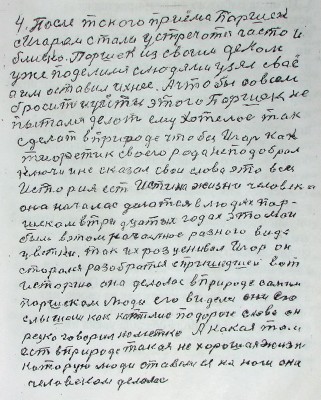 4. После такого приёма Паршек
с Игарем стали устречатся часто и
близко. Паршек из своим делом
уже поделился слюдями узял своё
а им оставил ихнее. А чтобы совсем
бросить нуйти этого Паршек не
пытался делать ему хотелося так
сделат в природе чтобы Игар как
теоретик своего рода не подобрал
ключи и не сказал свои слова это вся
История ест Истина жизни человека
она началас делатся в людях пар-
шеком в тридцатых годах это маи
был в том начальное разного вида
цветки. так их розценивал Игар он
старался разобратся спришедшей вот
историю она делалас в природе самим
паршеком Люди его видели они его
слышали как катилис подороге слова он
редко говорил на летке А какая там
ест в природе такая не хорошая жизн
которую люди ставили на ноги она
человеком делалас